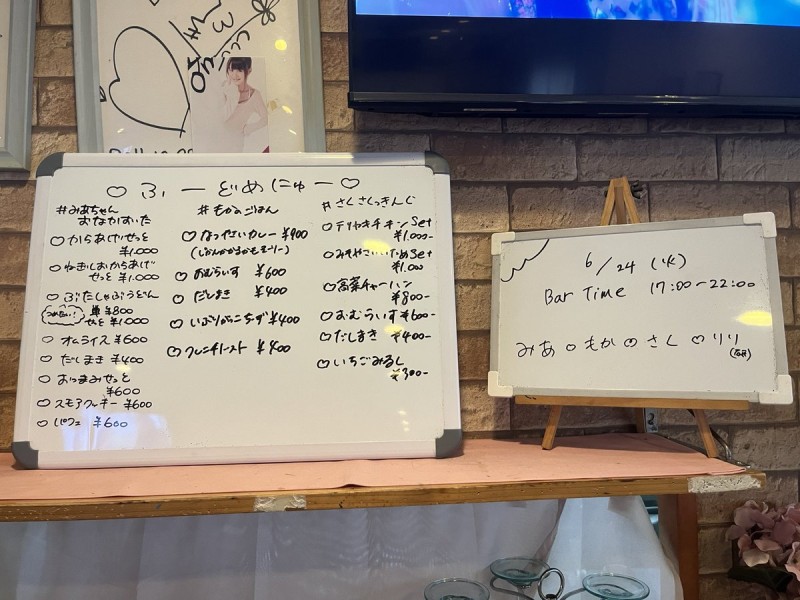 ♡ ふーどめにゅー ♡
#みあちゃん
おなかすいた
♡ からあげせっと
¥1.000
♡ ねぎしおからあげ
せっと ¥1.000
♡ ぶたしゃぶうどん
つめたい! 単 ¥800
せっと ¥1000
♡ オムライス ¥600
♡ だしまき ¥400
♡ おつまみせっと
¥600
♡ スモアクッキー ¥600
♡ パフェ ¥600
#もかのごはん
♡ なつやさいカレー ¥900
♡ おむらいす ¥600
♡ だしまき ¥400
♡ いぶりがっこちーず ¥400
♡ フレンチトースト ¥400
#さくさくっきんぐ
♡ テリヤキチキンSet
¥1.000-
♡ みそやさいいためSet
¥1.000
♡ 高菜チャーハン
¥800-
♡ おむらいす ¥600-
♡ だしまき ¥400-
♡ いちごみるく
¥300-
6/24 (水)
Bar Time 17:00~22:00
みあ ♡ もか ♡ さく ♡ リリ